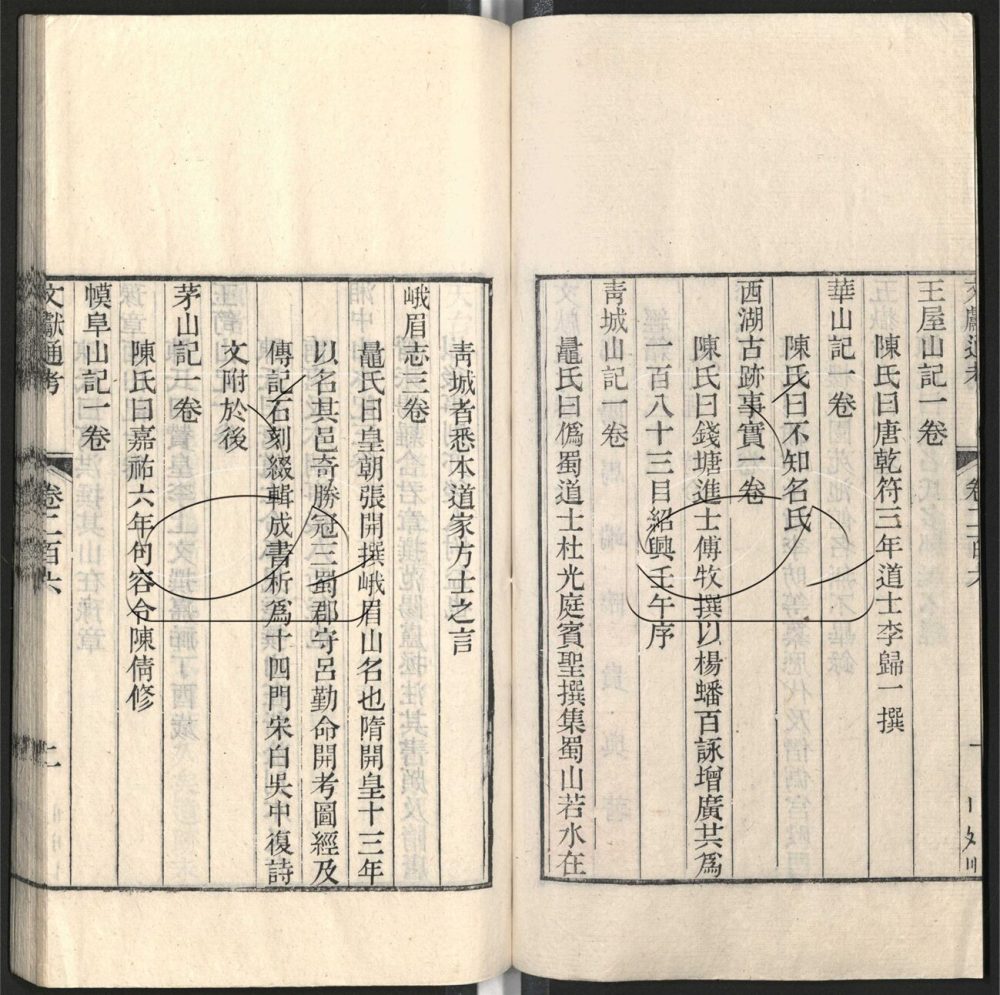 王屋山記一卷
陳氏曰唐乾符三年道士李歸一撰
華山記一卷
陳氏曰不知名氏
西湖古跡事實一卷
陳氏曰錢塘進士傅牧撰以楊蟠百詠增廣共爲
一百八十三目紹興壬午序
靑城山記一卷
鼂氏曰僞蜀道士杜光庭賓聖撰集蜀山若水在
靑城者悉本道家方士之言
峨眉志三卷
鼂氏曰皇朝張開撰峨眉山名也隋開皇十三年
以名其邑奇勝冠三蜀郡守呂勤命開考圖經及
傳記石刻綴輯成書析爲十四門宋白吳中復詩
文附於後
茅山記一卷
陳氏曰嘉祐六年句容令陳倩修
幙阜山記一卷
文獻通考 卷二百六 二